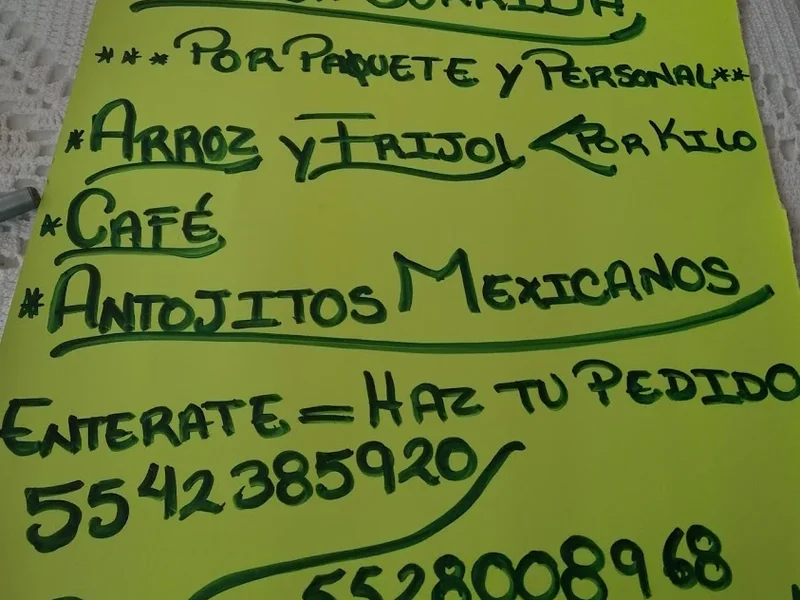 CORRIDA
*** POR PAQUETE Y PERSONAL**
*ARROZ Y FRIJOL <POR KILO
*CAFÉ
*ANTOJITOS MEXICANOS
ENTERATE = HAZ TU PEDIDO
5542385920
5528008968